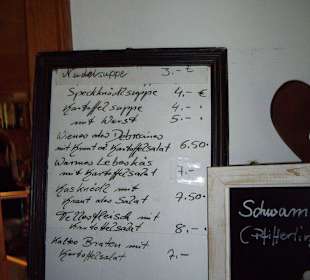 Nudelsuppe 3,-
Speckknödlsuppe 4,- €
Kartoffelsuppe 4,-
mit Wurst 5,-
Wiener oder Debreziner
mit Kraut od. Kartoffelsalat 6.50
Warmes Leberkäs
mit Kartoffelsalat 7,-
Kasknödl mit
Kraut oder Salat 7.50
Tellerfleisch mit
Kartoffelsalat 8,-
Kalter Braten mit
Kartoffelsalat 7,-
Schwam
(-Pfifferling